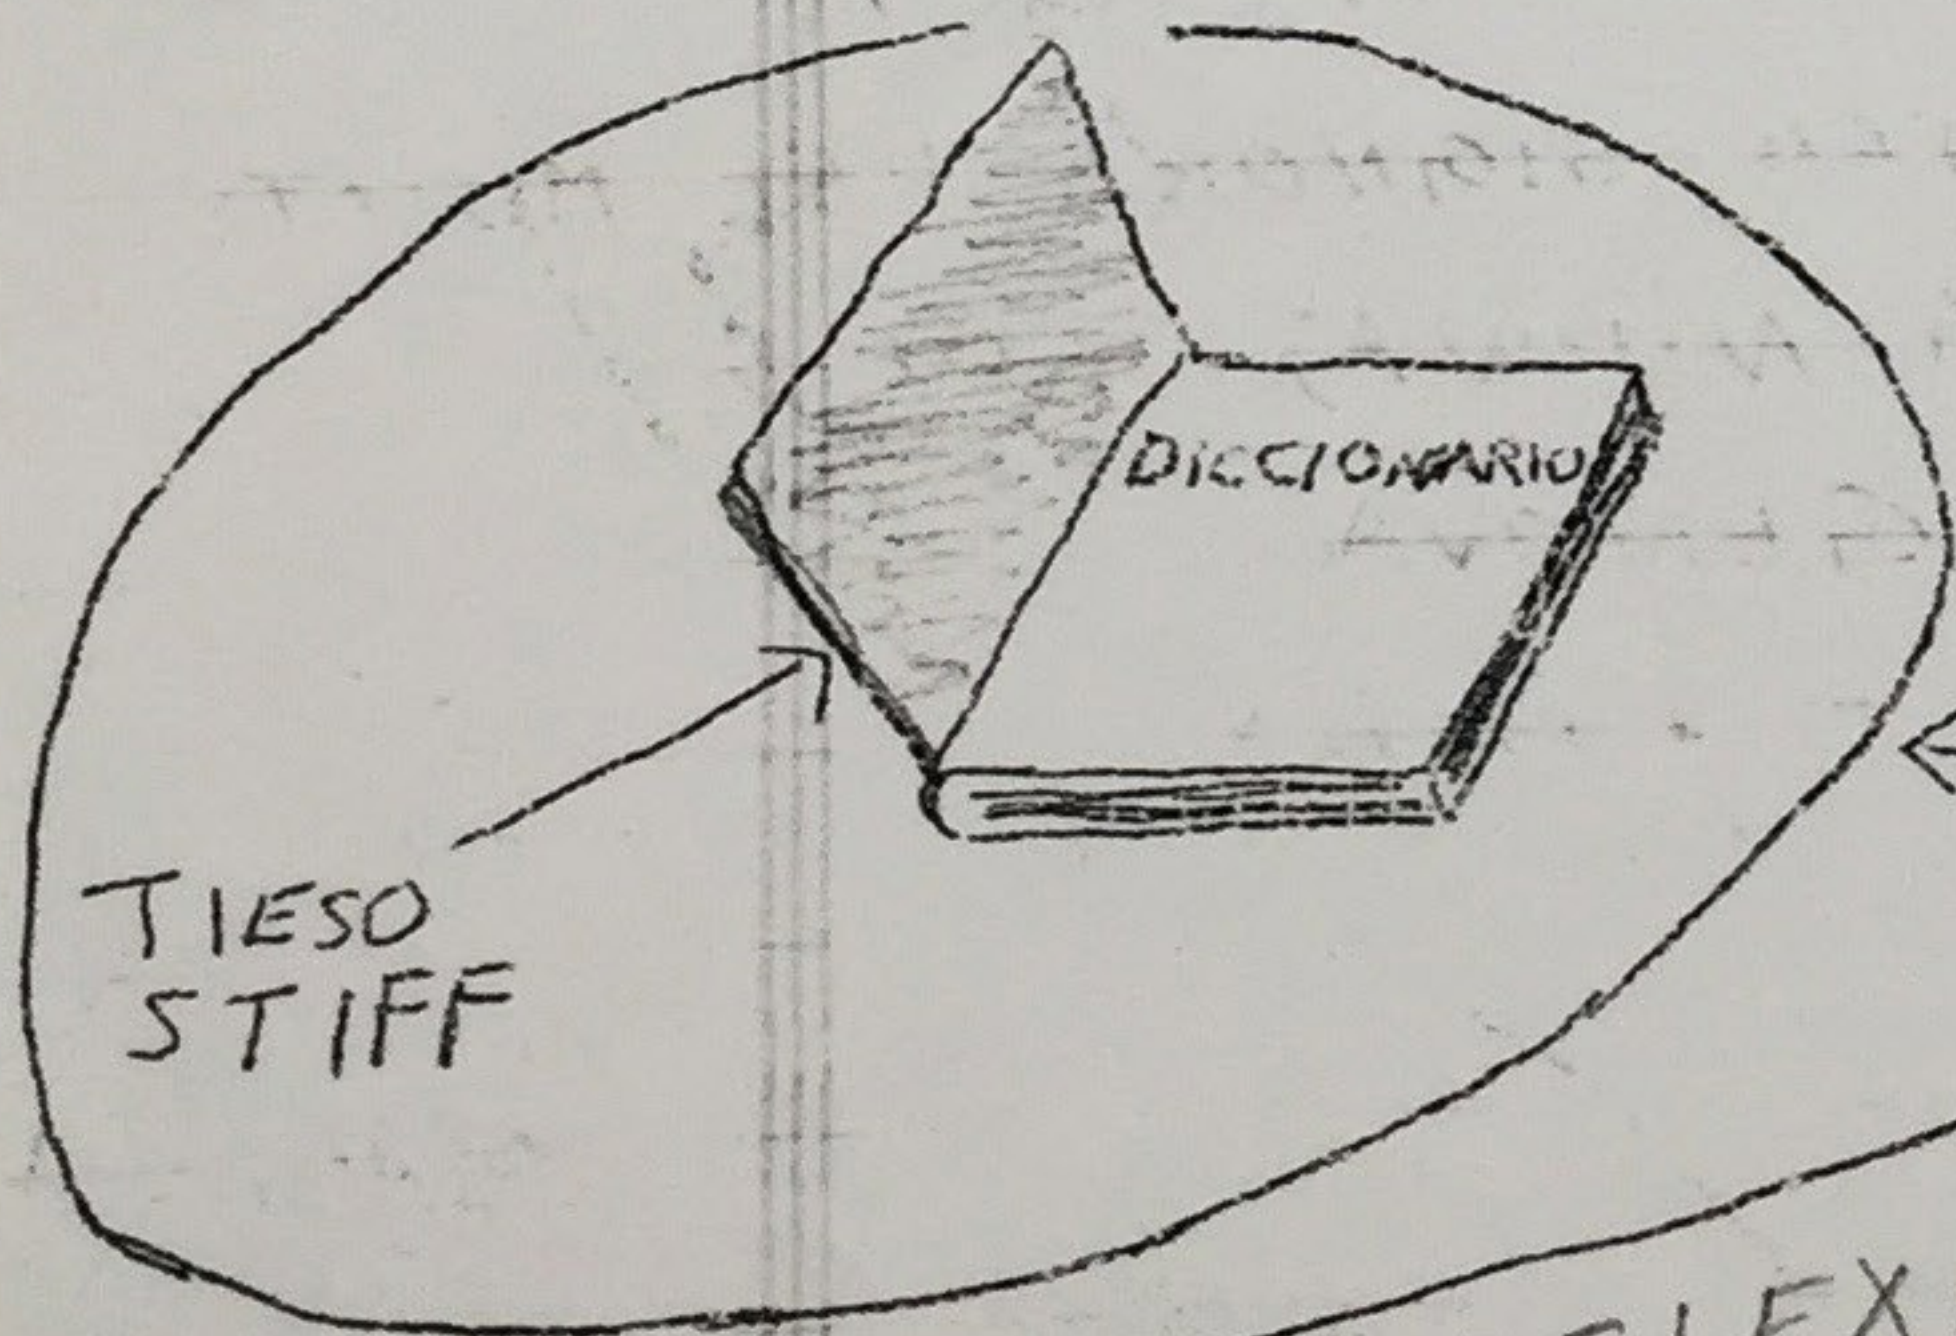 DICCIONARIO
TIESO
STIFF